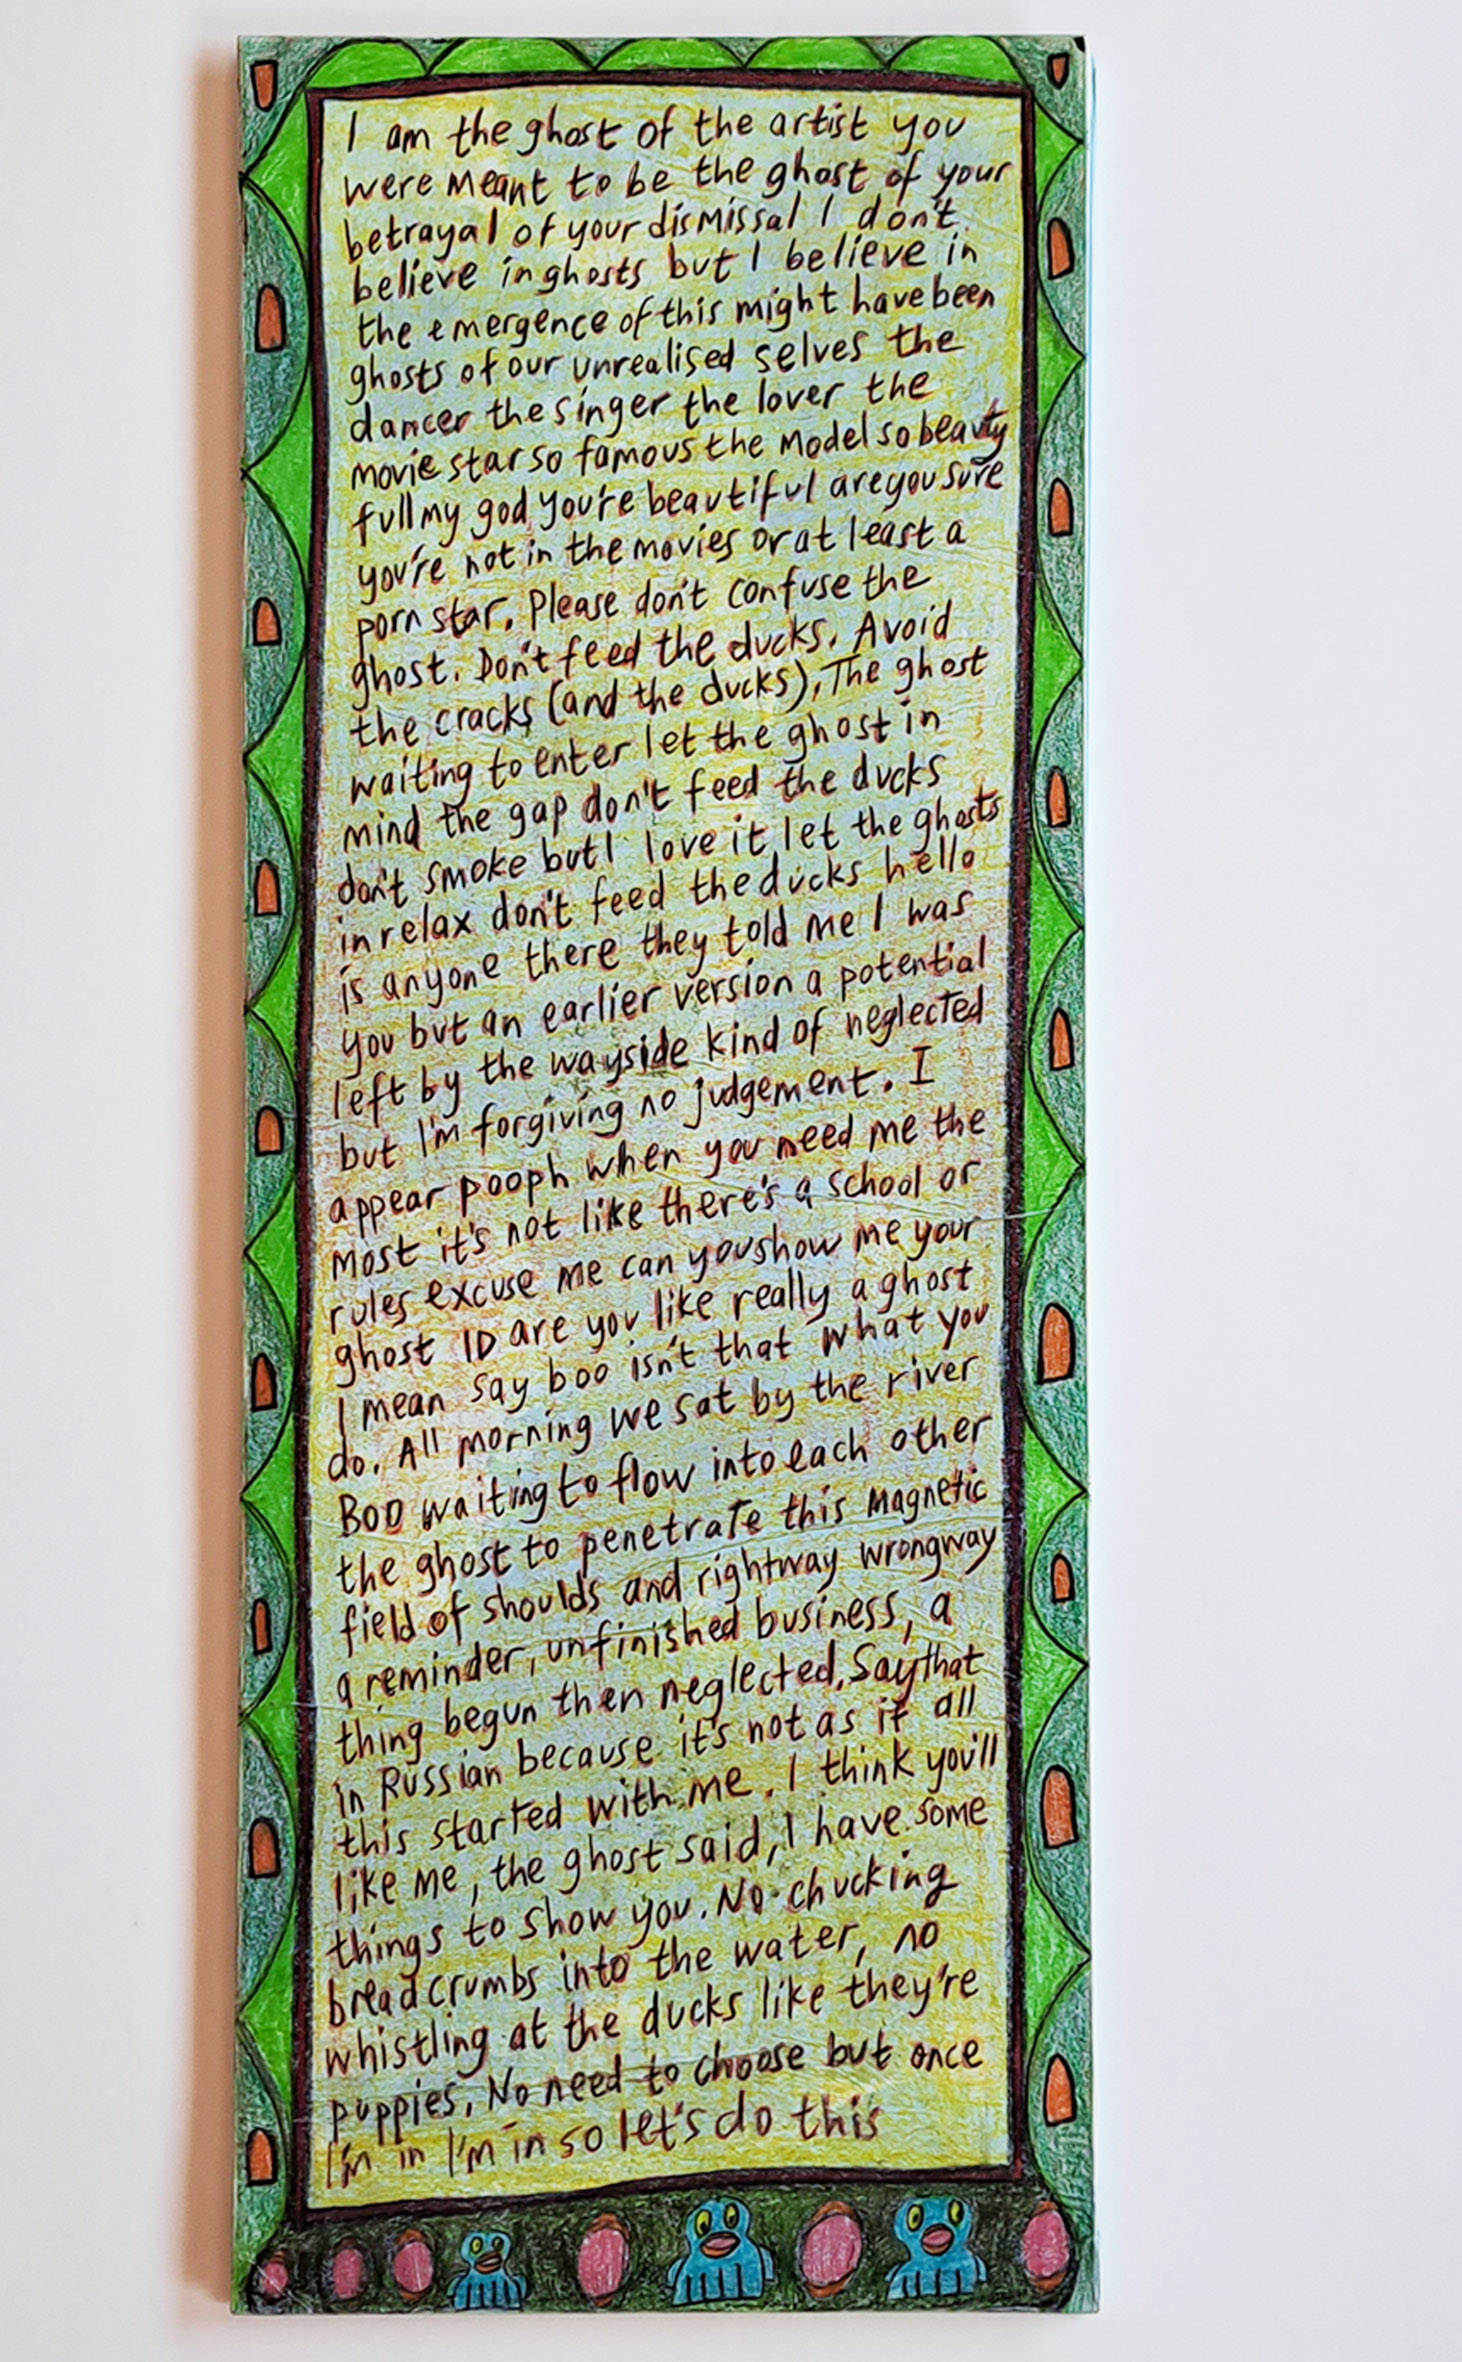 I am the ghost of the artist you
were meant to be the ghost of your
betrayal of your dismissal I don't
believe in ghosts but I believe in
the emergence of this might have been
ghosts of our unrealised selves the
dancer the singer the lover the
movie star so famous the model so beauty
full my god you're beautiful are you sure
you're not in the movies or at least a
porn star. Please don't confuse the
ghost. Don't feed the ducks. Avoid
the cracks (and the ducks). The ghost
waiting to enter let the ghost in
mind the gap don't feed the ducks
don't smoke but I love it let the ghosts
in relax don't feed the ducks hello
is anyone there they told me I was
you but an earlier version a potential
left by the wayside kind of neglected
but I'm forgiving no judgement. I
appear pooph when you need me the
most it's not like there's a school or
rules excuse me can you show me your
ghost ID are you like really a ghost
I mean say boo isn't that what you
do. All morning we sat by the river
Boo waiting to flow into each other
the ghost to penetrate this magnetic
field of shoulds and rightway wrongway
a reminder, unfinished business, a
thing begun then neglected. Say that
in Russian because it's not as if all
this started with me. I think you'll
like me, the ghost said, I have some
things to show you. No chucking
breadcrumbs into the water, no
whistling at the ducks like they're
puppies. No need to choose but once
I'm in I'm in so let's do this